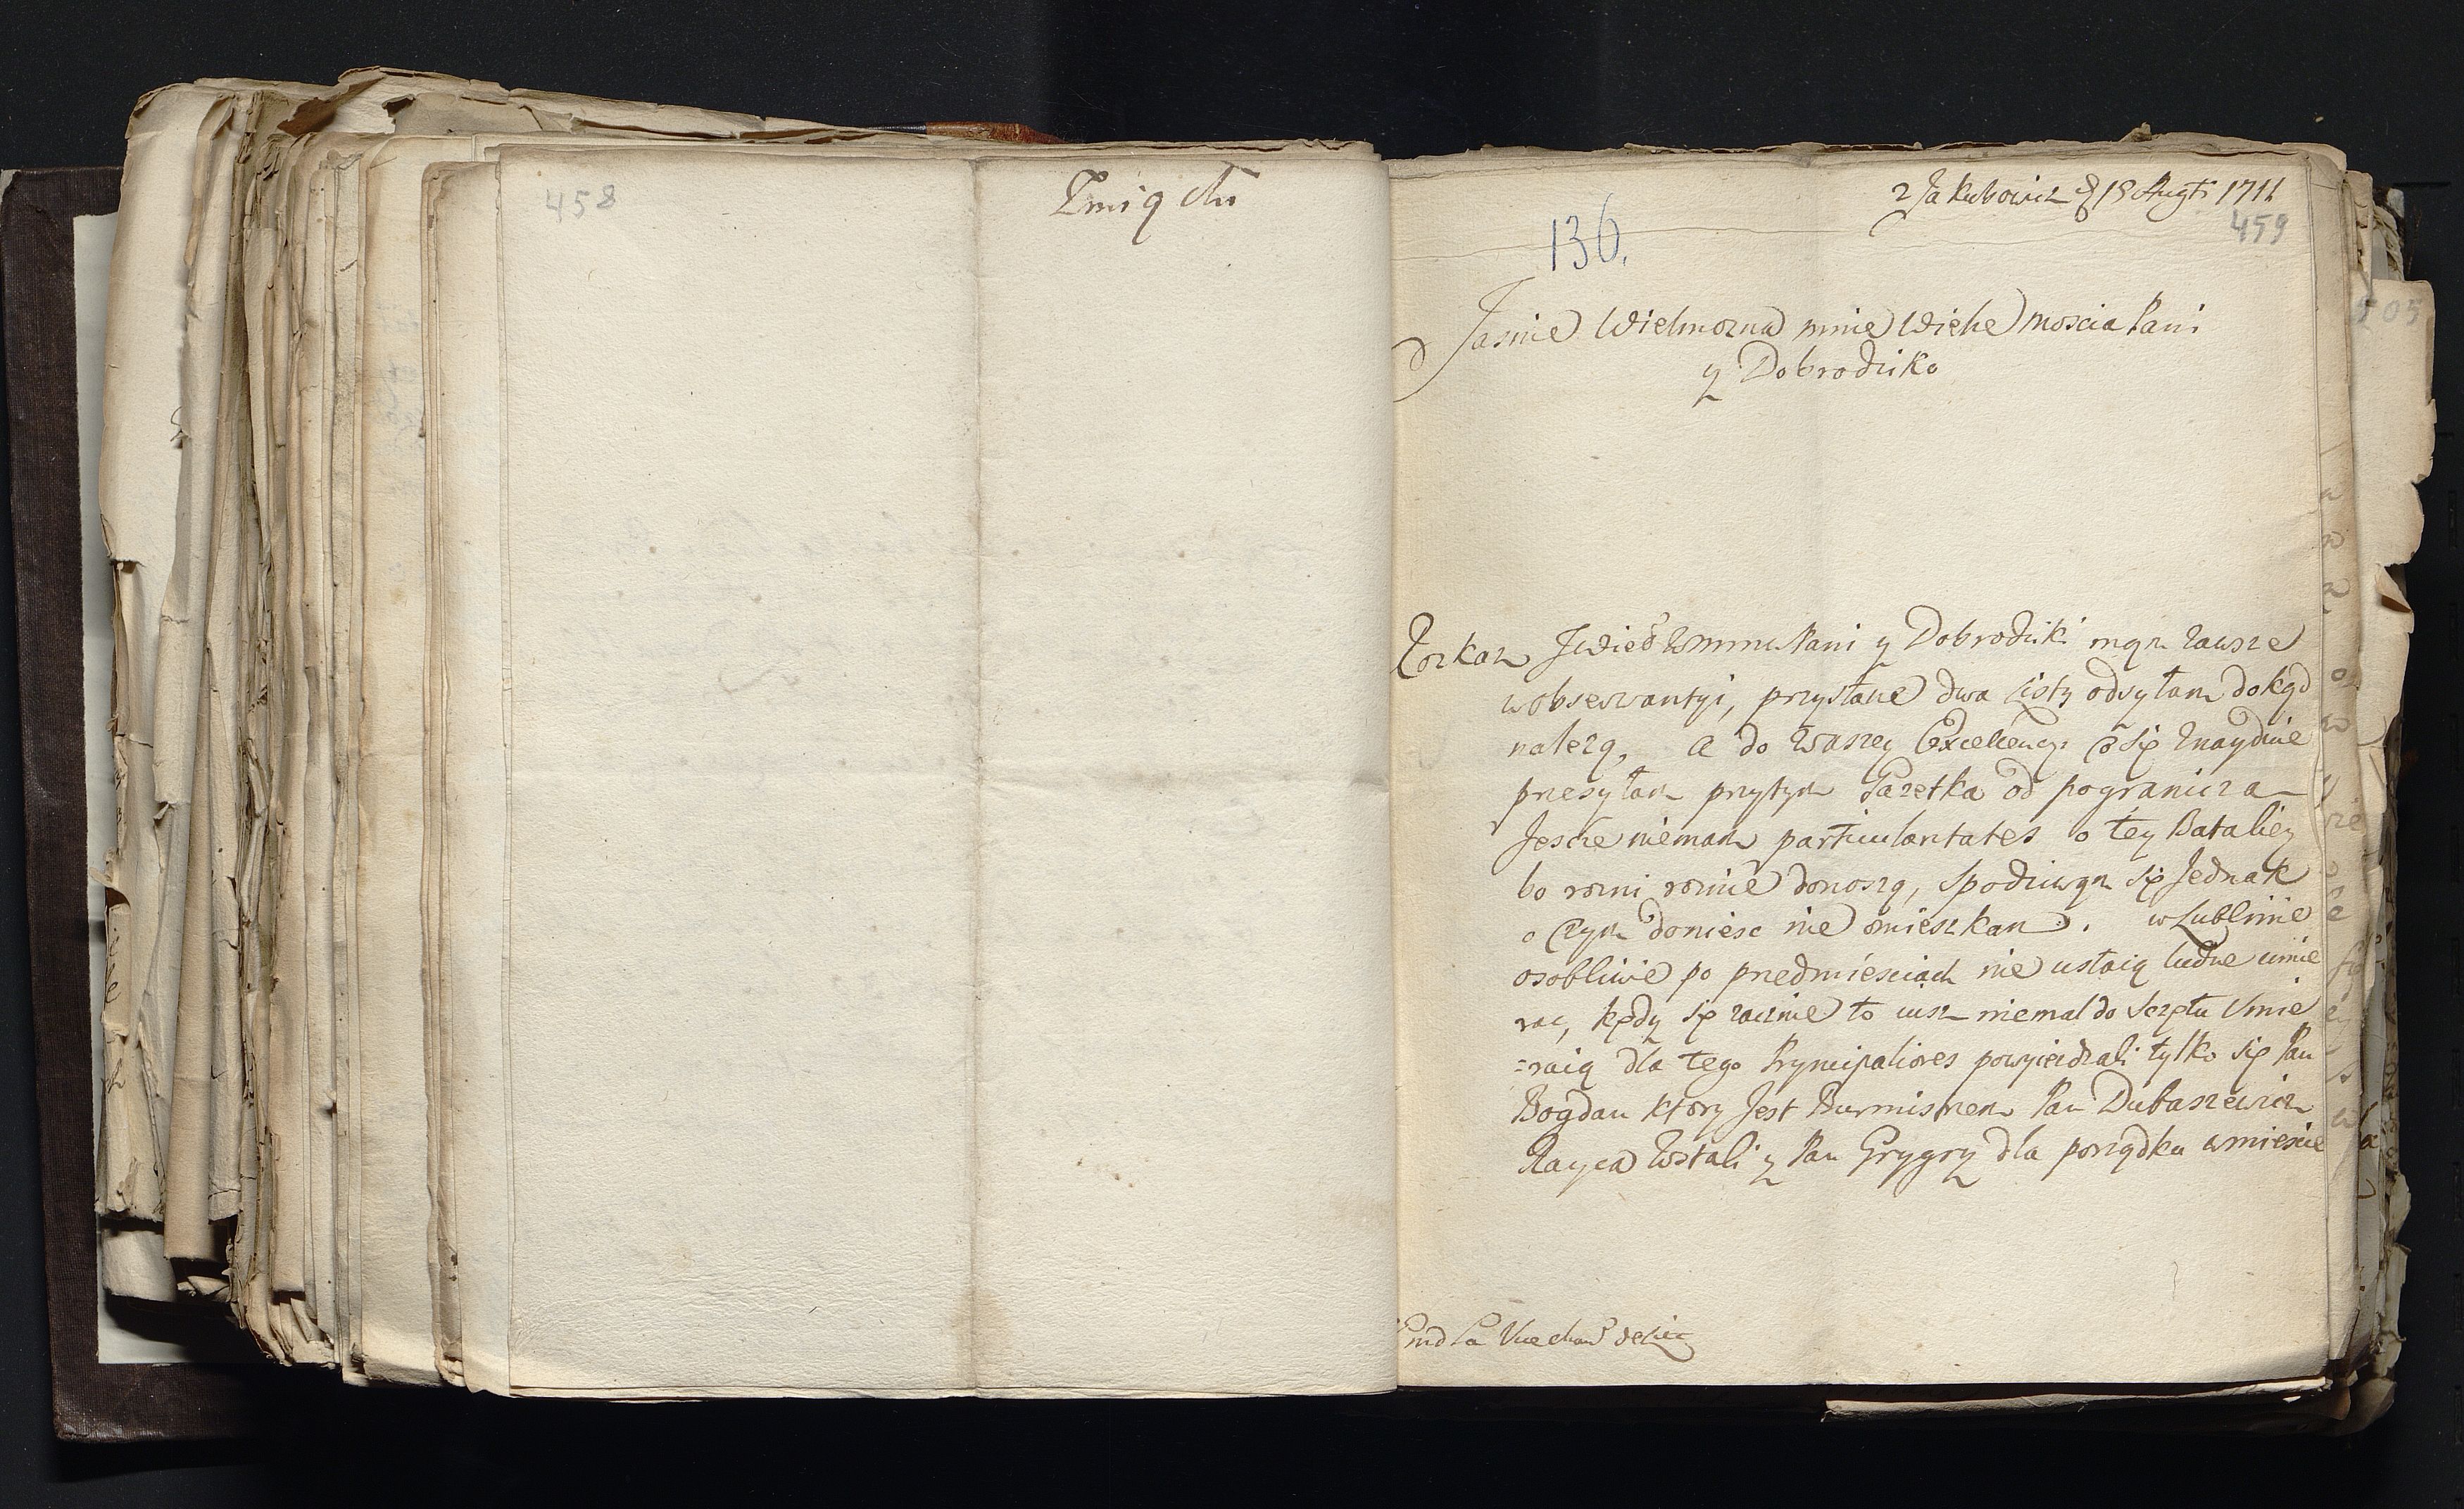 458
136.
z Jakubowicz d 18 Augti 1711
459
Jasnie Wielmozna mnie Wielce Moscia Pani
y Dobrodziko
Rozkaz Pani y Dobrodziki mąm zawsze
w obserwantyi, przysłane dwa Listy odsyłam dokąd
nalezą, a do Waszey Excellencyi co się znayduie
przesyłam przytym Gazetka od pogranicza
Jescze niemam particularitates o tey Bataliey
bo rozni roznie donoszą, spodziwąm się Jednak
o czym doniesc nie omieszkam. w Lublinie
osobliwie po przedmiesciach nie ustaią ludzie umie
rac, kędy się zacznie to iusz niemal do Sczętu Vmie
=raią dla tego Pryncipaliores powyiezdzali tylko się Pan
Bogdan ktory Jest Burmistrzem Pan Dubaszewicz
Rayca zostali y Pan Grygry dla porządku w miescie